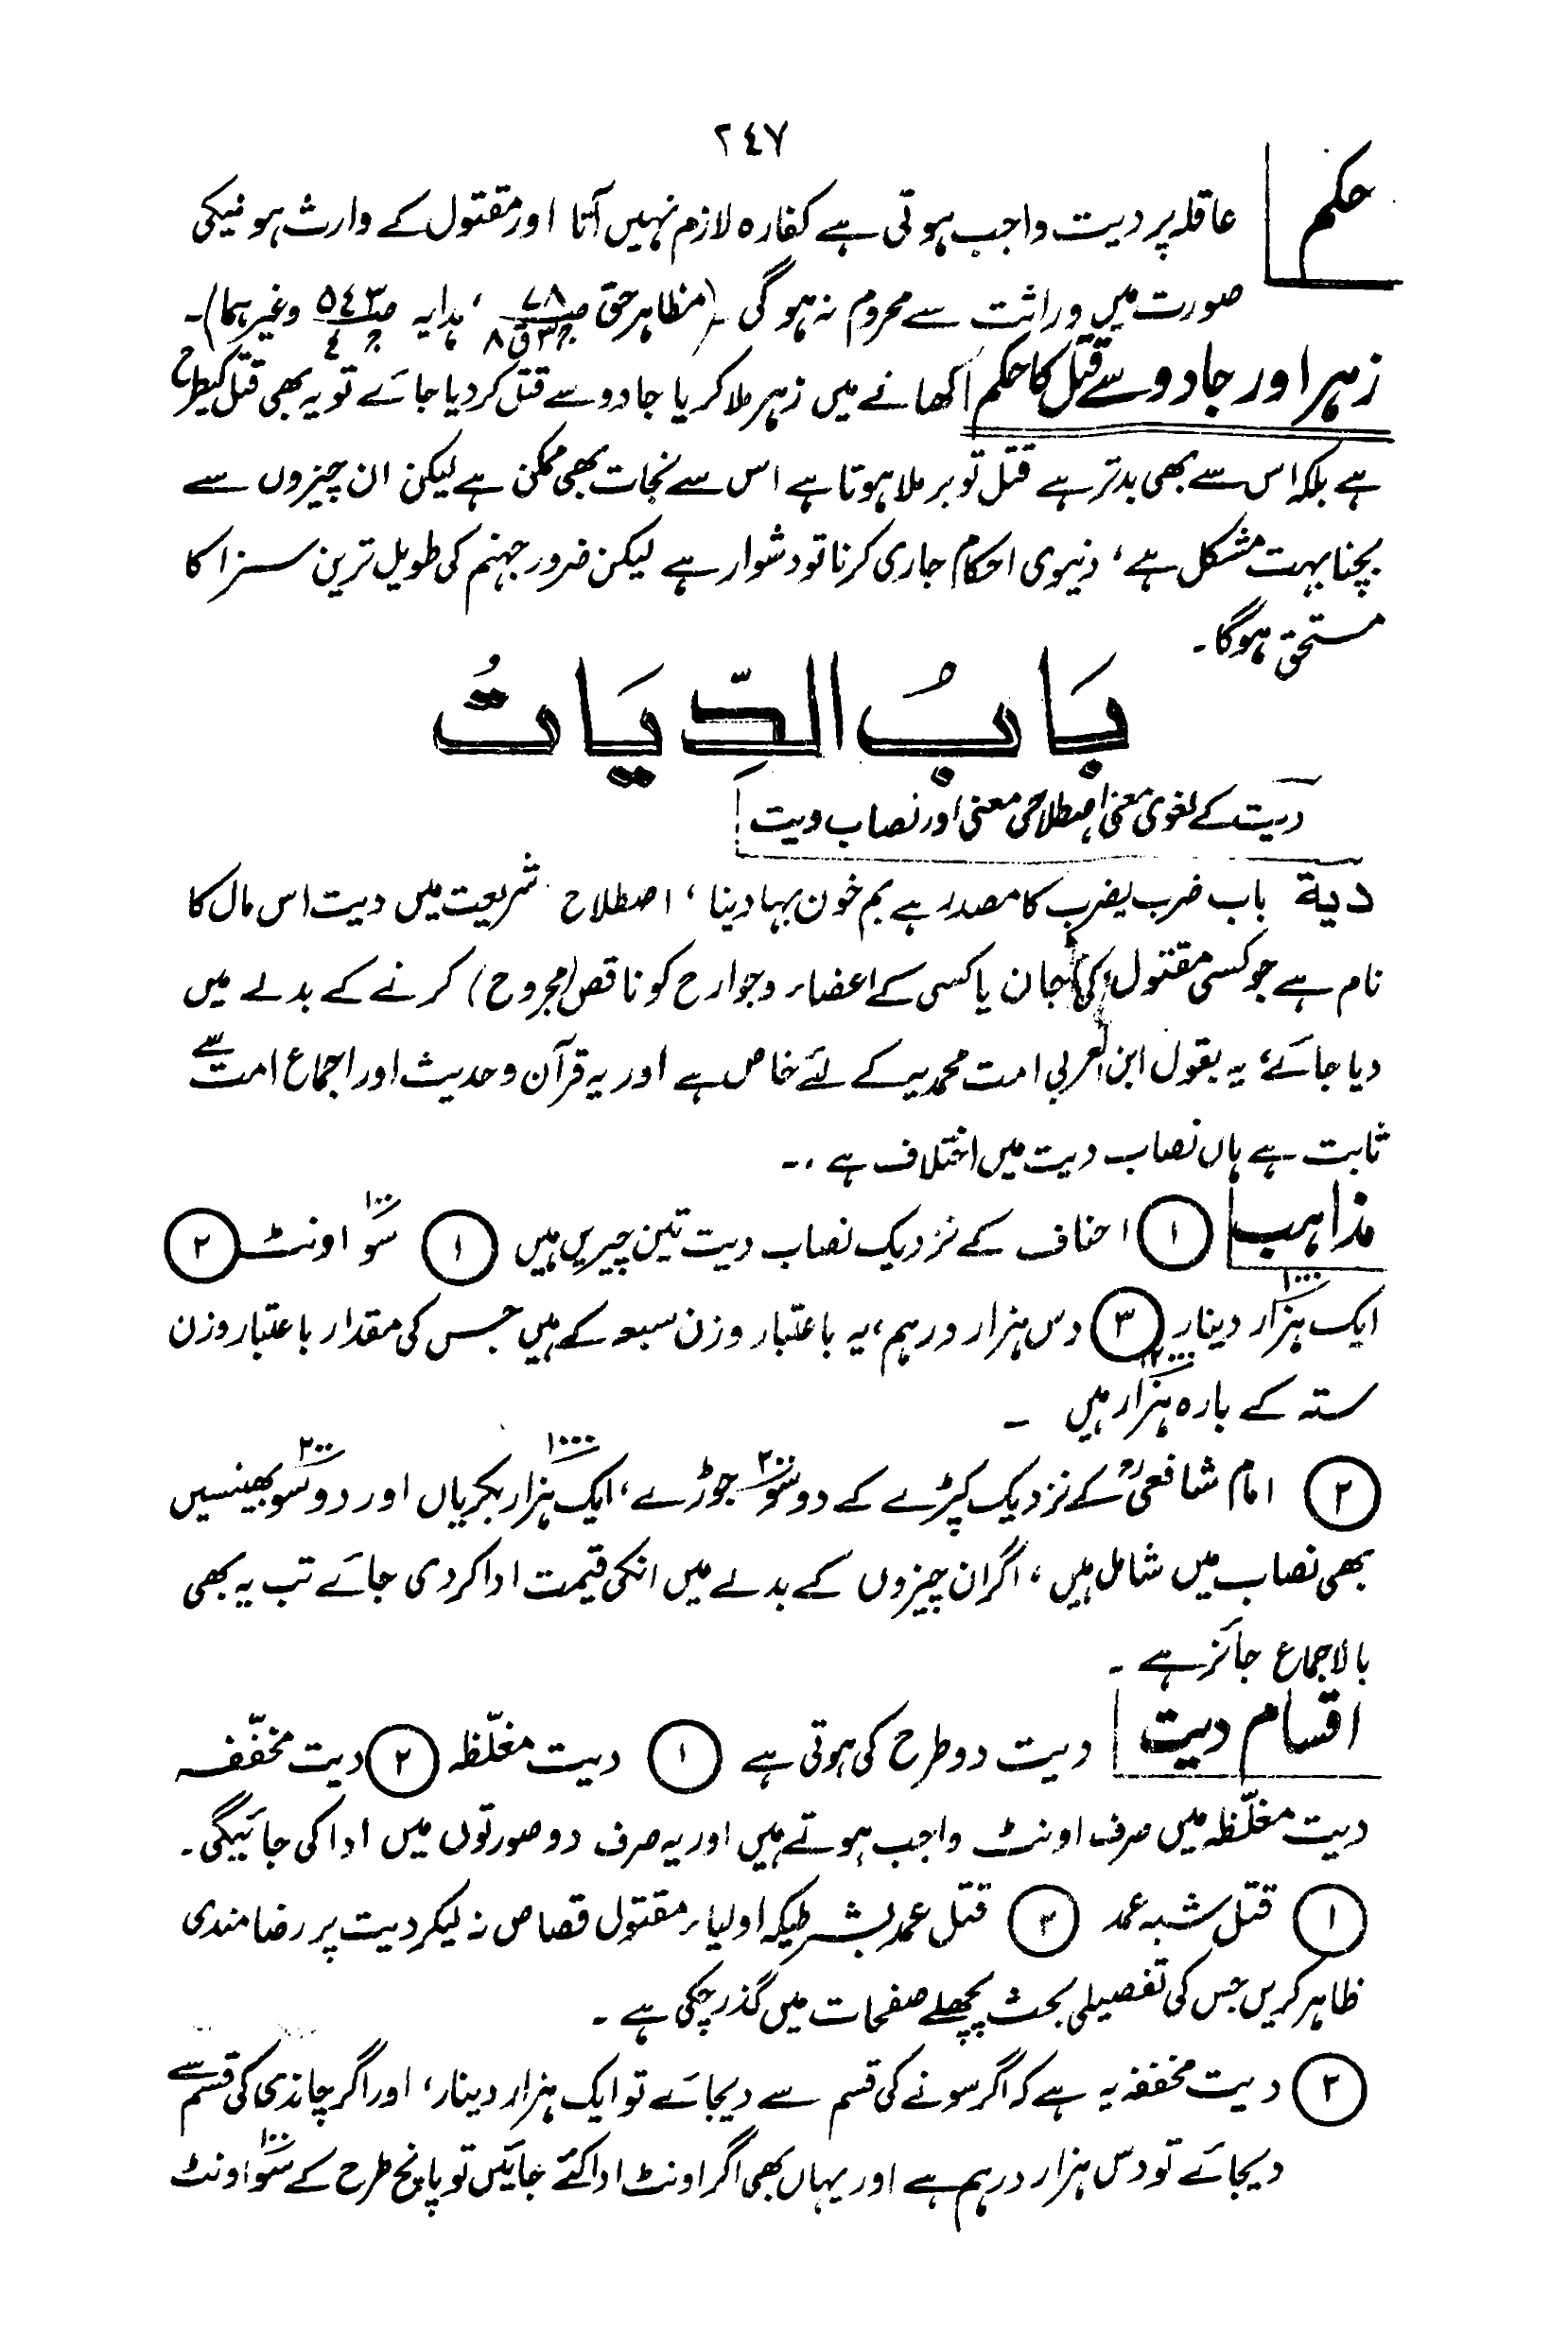 ٢٤٧
حکم
عاقلہ پر دیت واجب ہوتی ہے کفارہ لازم نہیں آتا اور مقتول کے وارث ہونیکی
صورت میں وراثت سے محروم نہ ہوگی (مظاہر حق ص۷۸ ج۳ ق۸ ، ہدایہ ص٥٤٣ ج٤ وغیرہما)۔
زہر اور جادو سے قتل کا حکم کھانے میں زہر ملا کر یا جادو سے قتل کردیا جائے تو یہ بھی قتل کیطرح
ہے بلکہ اس سے بھی بدتر ہے قتل تو برملا ہوتا ہے اس سے نجات بھی ممکن ہے لیکن ان چیزوں سے
بچنا بہت مشکل ہے، دنیوی احکام جاری کرنا تو دشوار ہے لیکن ضرور جہنم کی طویل ترین سزا کا
مستحق ہوگا۔
بَابُ الدِّيَاتُ
دیت کے لغوی معنی اصطلاحی معنی اور نصاب دیت
دية باب ضرب یضرب کا مصدر ہے بم خون بہا دینا، اصطلاح شریعت میں دیت اس مال کا
نام ہے جو کسی مقتول کی جان یا کسی کے اعضاء وجوارح کو ناقص (مجروح) کرنے کے بدلے میں
دیا جائے، یہ بقول ابن العربی امت محمدیہ کے لئے خاص ہے اور یہ قرآن وحدیث اور اجماع امت سے
ثابت ہے ہاں نصاب دیت میں اختلاف ہے ۔۔
مذاہب ① احناف کے نزدیک نصاب دیت تین چیزیں ہیں ① سو ۱۰۰ اونٹ ②
ایک ہزار ۱۰۰۰ دینار ③ دس ہزار درہم، یہ باعتبار وزن سبعہ کے ہیں جس کی مقدار باعتبار وزن
ستہ کے بارہ ہزار ۱۲۰۰۰ ہیں ۔
② امام شافعیؒ کے نزدیک کپڑے کے دو سو ۲۰۰ جوڑے، ایک ہزار ۱۰۰۰ بکریاں اور دو سو ۲۰۰ بھینسیں
بھی نصاب میں شامل ہیں، اگر ان چیزوں کے بدلے میں انکی قیمت ادا کردی جائے تب یہ بھی
بالاجماع جائز ہے ۔
اقسام دیت دیت دو طرح کی ہوتی ہے ① دیت مغلّظہ ② دیت مخفّفہ
دیت مغلّظہ میں صرف اونٹ واجب ہوتے ہیں اور یہ صرف دو صورتوں میں ادا کی جائیگی۔
① قتل شبہ عمد ② قتل عمد بشرطیکہ اولیاء مقتول قصاص نہ لیکر دیت پر رضامندی
ظاہر کریں جس کی تفصیلی بحث پچھلے صفحات میں گذر چکی ہے ۔
② دیت مخففہ یہ ہے کہ اگر سونے کی قسم سے دیجائے تو ایک ہزار دینار، اور اگر چاندی کی قسم سے
دیجائے تو دس ہزار درہم ہے اور یہاں بھی اگر اونٹ ادا کئے جائیں تو پانچ طرح کے سو ۱۰۰ اونٹ